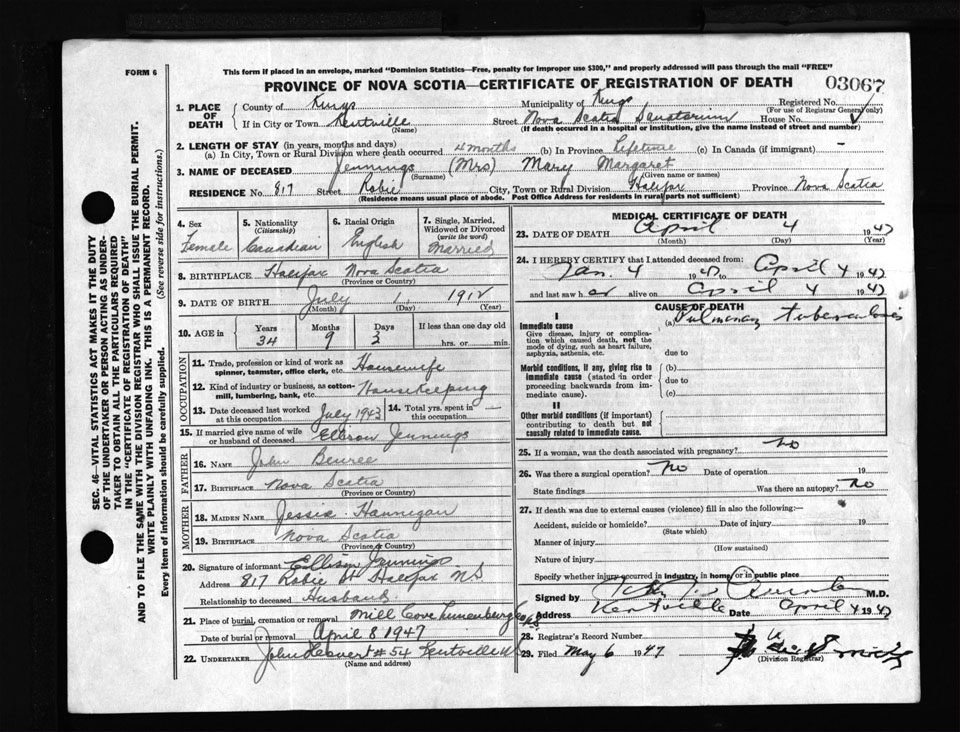 FORM 6
This form if placed in an envelope, marked "Dominion Statistics—Free, penalty for improper use $300," and properly addressed will pass through the mail "FREE"
PROVINCE OF NOVA SCOTIA—CERTIFICATE OF REGISTRATION OF DEATH
03067
1. PLACE OF DEATH
County of Kings Municipality of Kings Registered No.
(For use of Registrar General only)
If in City or Town Kentville Street Nova Scotia Sanatorium House No.
(Name) (If death occurred in a hospital or institution, give the name instead of street and number)
2. LENGTH OF STAY (in years, months and days)
(a) In City, Town or Rural Division where death occurred 4 months (b) In Province Lifetime (c) In Canada (if immigrant) —
3. NAME OF DECEASED Jennings (Mrs) Mary Margaret
(Surname) (Given name or names)
RESIDENCE No. 817 Street Robie City, Town or Rural Division Halifax Province Nova Scotia
(Residence means usual place of abode. Post Office Address for residents in rural parts not sufficient)
4. Sex
Female
5. Nationality
(Citizenship)
Canadian
6. Racial Origin
English
7. Single, Married, Widowed or Divorced
(write the word)
Married
8. BIRTHPLACE Halifax Nova Scotia
(Province or Country)
9. DATE OF BIRTH July 1, 1912
(Month) (Day) (Year)
10. AGE in Years Months Days If less than one day old
34 9 3 hrs. or min.
OCCUPATION
11. Trade, profession or kind of work as spinner, teamster, office clerk, etc. Housewife
12. Kind of industry or business, as cotton-mill, lumbering, bank, etc. Housekeeping
13. Date deceased last worked at this occupation July 1943
14. Total yrs. spent in this occupation —
15. If married give name of wife or husband of deceased Ellison Jennings
FATHER
16. NAME John
17. BIRTHPLACE Nova Scotia
(Province or Country)
MOTHER
18. MAIDEN NAME Jessie Hannigan
19. BIRTHPLACE Nova Scotia
(Province or Country)
20. Signature of informant Ellison Jennings
Address 817 Robie St Halifax NS
Relationship to deceased Husband
21. Place of burial, cremation or removal Mill Cove Lunenburg
Date of burial or removal April 8 1947
22. UNDERTAKER John #54 Kentville
(Name and address)
MEDICAL CERTIFICATE OF DEATH
23. DATE OF DEATH April 4 1947
(Month) (Day) (Year)
24. I HEREBY CERTIFY that I attended deceased from:
Jan. 4 1947 to April 4 1947
and last saw her alive on April 4 1947
CAUSE OF DEATH
I
Immediate cause
Give disease, injury or complication which caused death, not the mode of dying, such as heart failure, asphyxia, asthenia, etc.
(a) Pulmonary tuberculosis
due to
Morbid conditions, if any, giving rise to immediate cause (stated in order proceeding backwards from immediate cause).
(b)
due to
(c)
II
Other morbid conditions (if important) contributing to death but not causally related to immediate cause.
25. If a woman, was the death associated with pregnancy? no
26. Was there a surgical operation? no Date of operation 19
State findings Was there an autopsy? no
27. If death was due to external causes (violence) fill in also the following:—
Accident, suicide or homicide? Date of injury 19
(State which)
Manner of injury
(How sustained)
Nature of injury
Specify whether injury occurred in industry, in home or in public place
Signed by M.D.
Address Kentville Date April 4 1947
28. Registrar's Record Number
29. Filed May 6 1947
(Division Registrar)
SEC. 46—VITAL STATISTICS ACT MAKES IT THE DUTY
OF THE UNDERTAKER OR PERSON ACTING AS UNDERTAKER TO OBTAIN ALL THE PARTICULARS REQUIRED
IN THE "CERTIFICATE OF REGISTRATION OF DEATH"
AND TO FILE THE SAME WITH THE DIVISION REGISTRAR WHO SHALL ISSUE THE BURIAL PERMIT.
WRITE PLAINLY WITH UNFADING INK. THIS IS A PERMANENT RECORD.
Every item of information should be carefully supplied. (See reverse side for instructions.)